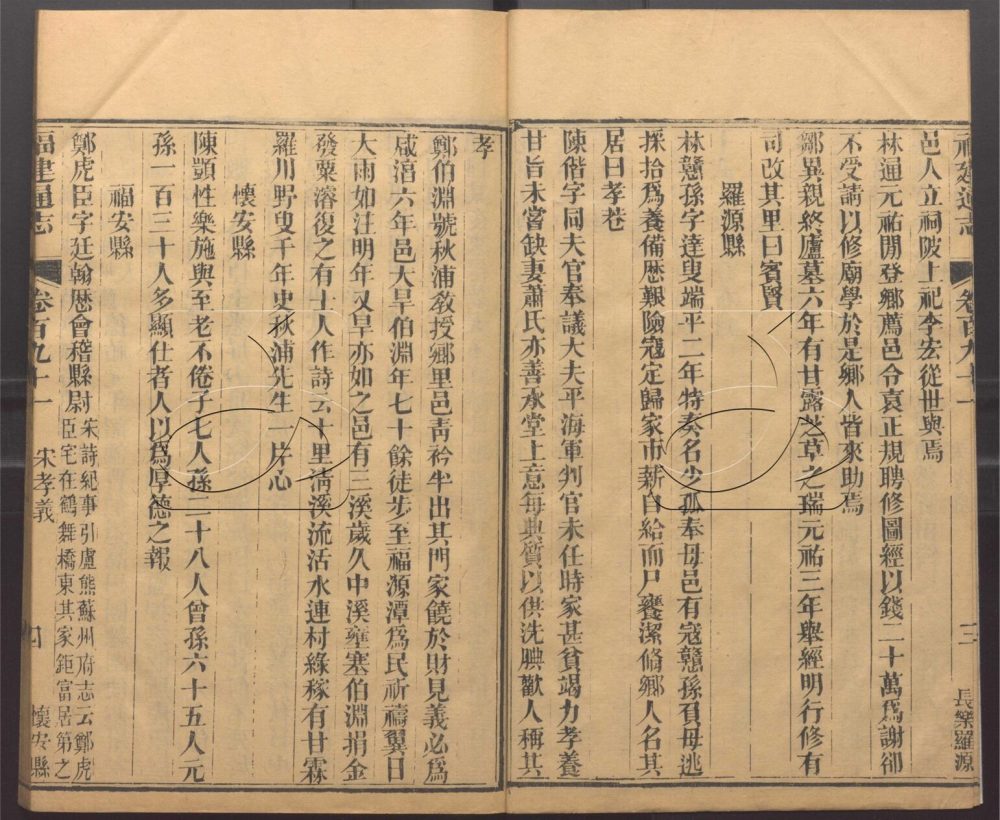 福建通志 卷百九十一 三 長樂羅源
邑人立祠陂上祀李宏從世與焉
林通元祐閒登鄉薦邑令袁正規聘修圖經以錢二十萬爲謝卻
不受請以修廟學於是鄉人皆來助焉
鄒異親終廬墓六年有甘露芝草之瑞元祐三年舉經明行修有
司改其里曰賓賢
羅源縣
林戇孫字達叟端平二年特奏名少孤奉母邑有寇戇孫負母逃
採拾爲養備歷艱險寇定歸家市薪自給而尸饔潔脩鄉人名其
居曰孝巷
陳偕字同夫官奉議大夫平海軍判官未任時家甚貧竭力孝養
甘旨未嘗缺妻蕭氏亦善承堂上意每典質以供洗腆歡人稱其
孝
鄭伯淵號秋浦敎授鄉里邑靑衿半出其門家饒於財見義必爲
咸淳六年邑大旱伯淵年七十餘徒步至福源潭爲民祈禱翼日
大雨如注明年又旱亦如之邑有三溪歲久中溪壅塞伯淵捐金
發粟濬復之有士人作詩云十里淸溪流活水連村綠稼有甘霖
羅川野叟千年史秋浦先生一片心
懷安縣
陳顗性樂施與至老不倦子七人孫二十八人曾孫六十五人元
孫一百三十人多顯仕者人以爲厚德之報
福安縣
鄭虎臣字廷翰歷會稽縣尉宋詩紀事引盧熊蘇州府志云鄭虎
臣宅在鶴舞橋東其家鉅富居第之
福建通志 卷百九十一 宋孝義 四 懷安縣